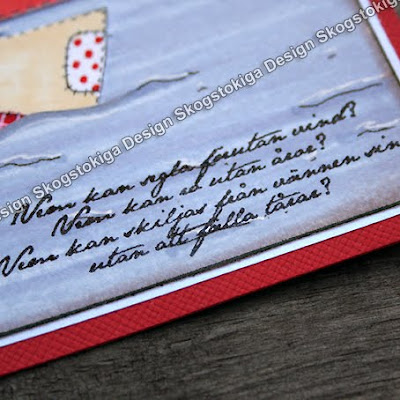 Skogstokiga Design Skogstokiga Design Skogstokiga Design Skogstokiga
Vem kan segla förutan vind?
Vem kan ro utan åror?
Vem kan skiljas från vännen sin
utan att fälla tårar?